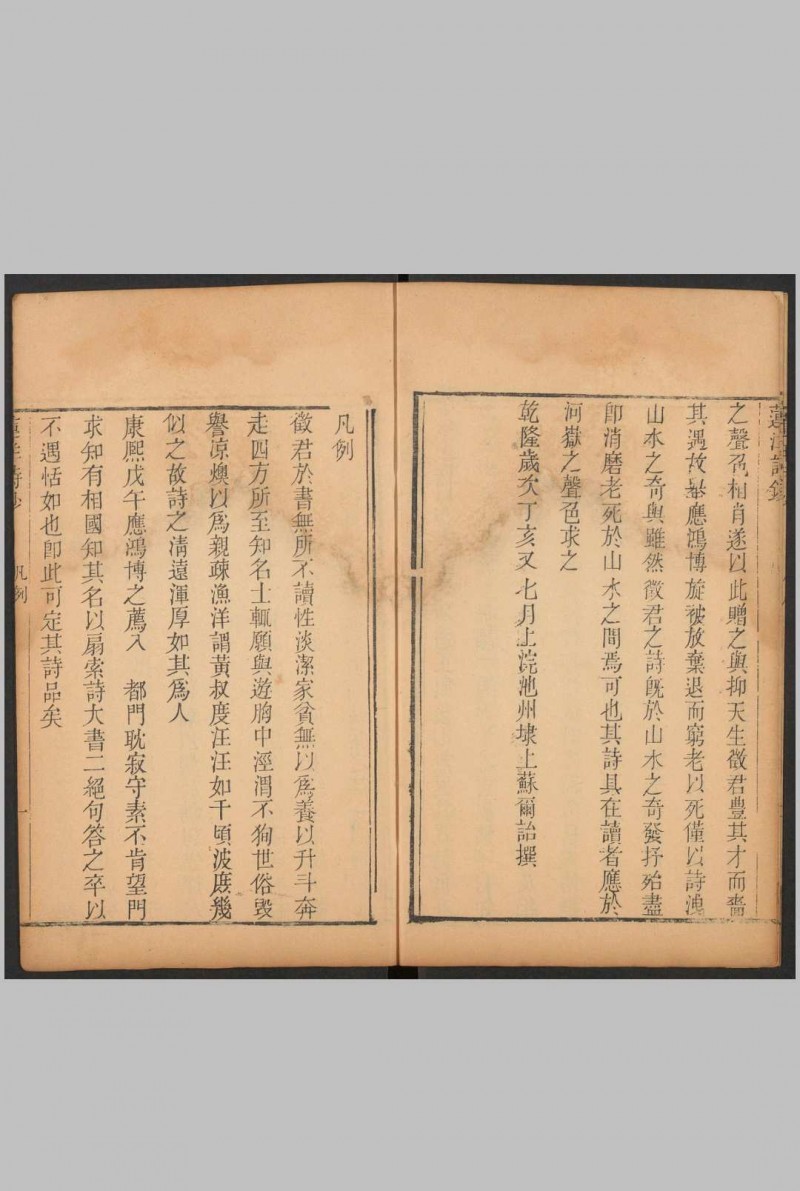 之聲色相肖遂以此贈之與抑天生徵君豊其才而嗇
其遇故畧應鴻博旋被放棄退而窮老以死僅以詩鴻
山水之奇與雖然徵君之詩旣於山水之奇發抒殆盡
卽消磨老死於山水之間焉可也其詩具在讀者應於
河嶽之聲色求之
乾隆歲次丁亥又七月上浣池州埭上蘇爾詒撰
凡例
徵君於書無所不讀性淡潔家貧無以爲養以升斗奔
走四方所至知名士輒願與遊胸中涇渭不狥世俗毁
譽凉燠以爲親疎漁洋謂黃叔度汪汪如千頃波庶幾
似之故詩之淸遠渾厚如其爲人
康熙戊午應鴻博之薦入　都門耽寂守素不肯望門
求知有相國知其名以扇索詩大書二絕句答之卒以
不遇恬如也卽此可定其詩品矣
蓮洋詩鈔　凡例